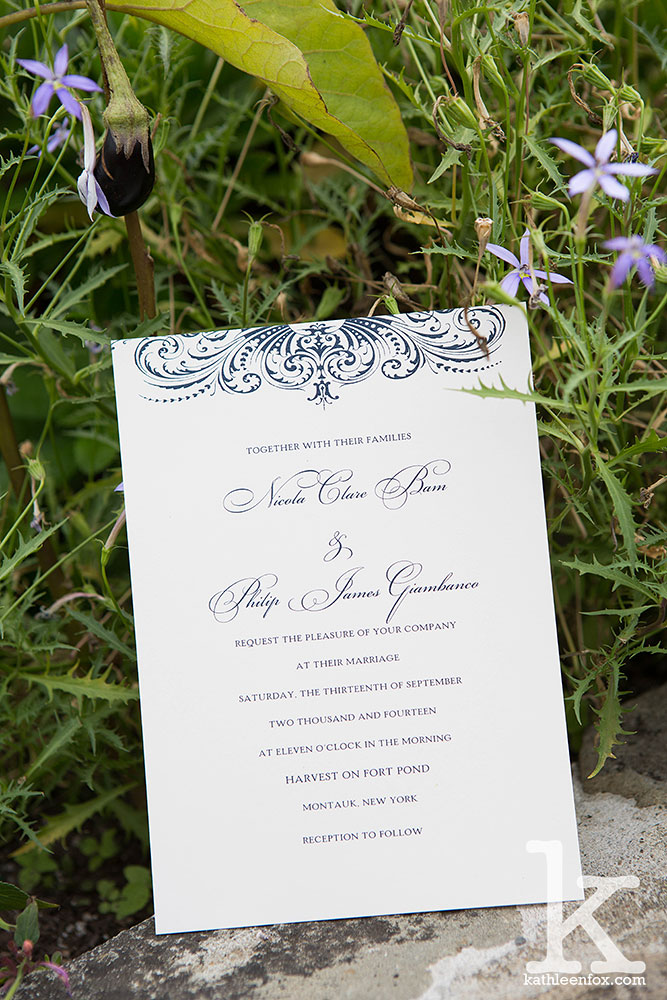 TOGETHER WITH THEIR FAMILIES
Nicola Clare Bam
&
Philip James Giambanco
REQUEST THE PLEASURE OF YOUR COMPANY
AT THEIR MARRIAGE
SATURDAY, THE THIRTEENTH OF SEPTEMBER
TWO THOUSAND AND FOURTEEN
AT ELEVEN O'CLOCK IN THE MORNING
HARVEST ON FORT POND
MONTAUK, NEW YORK
RECEPTION TO FOLLOW
k
kathleenfox.com